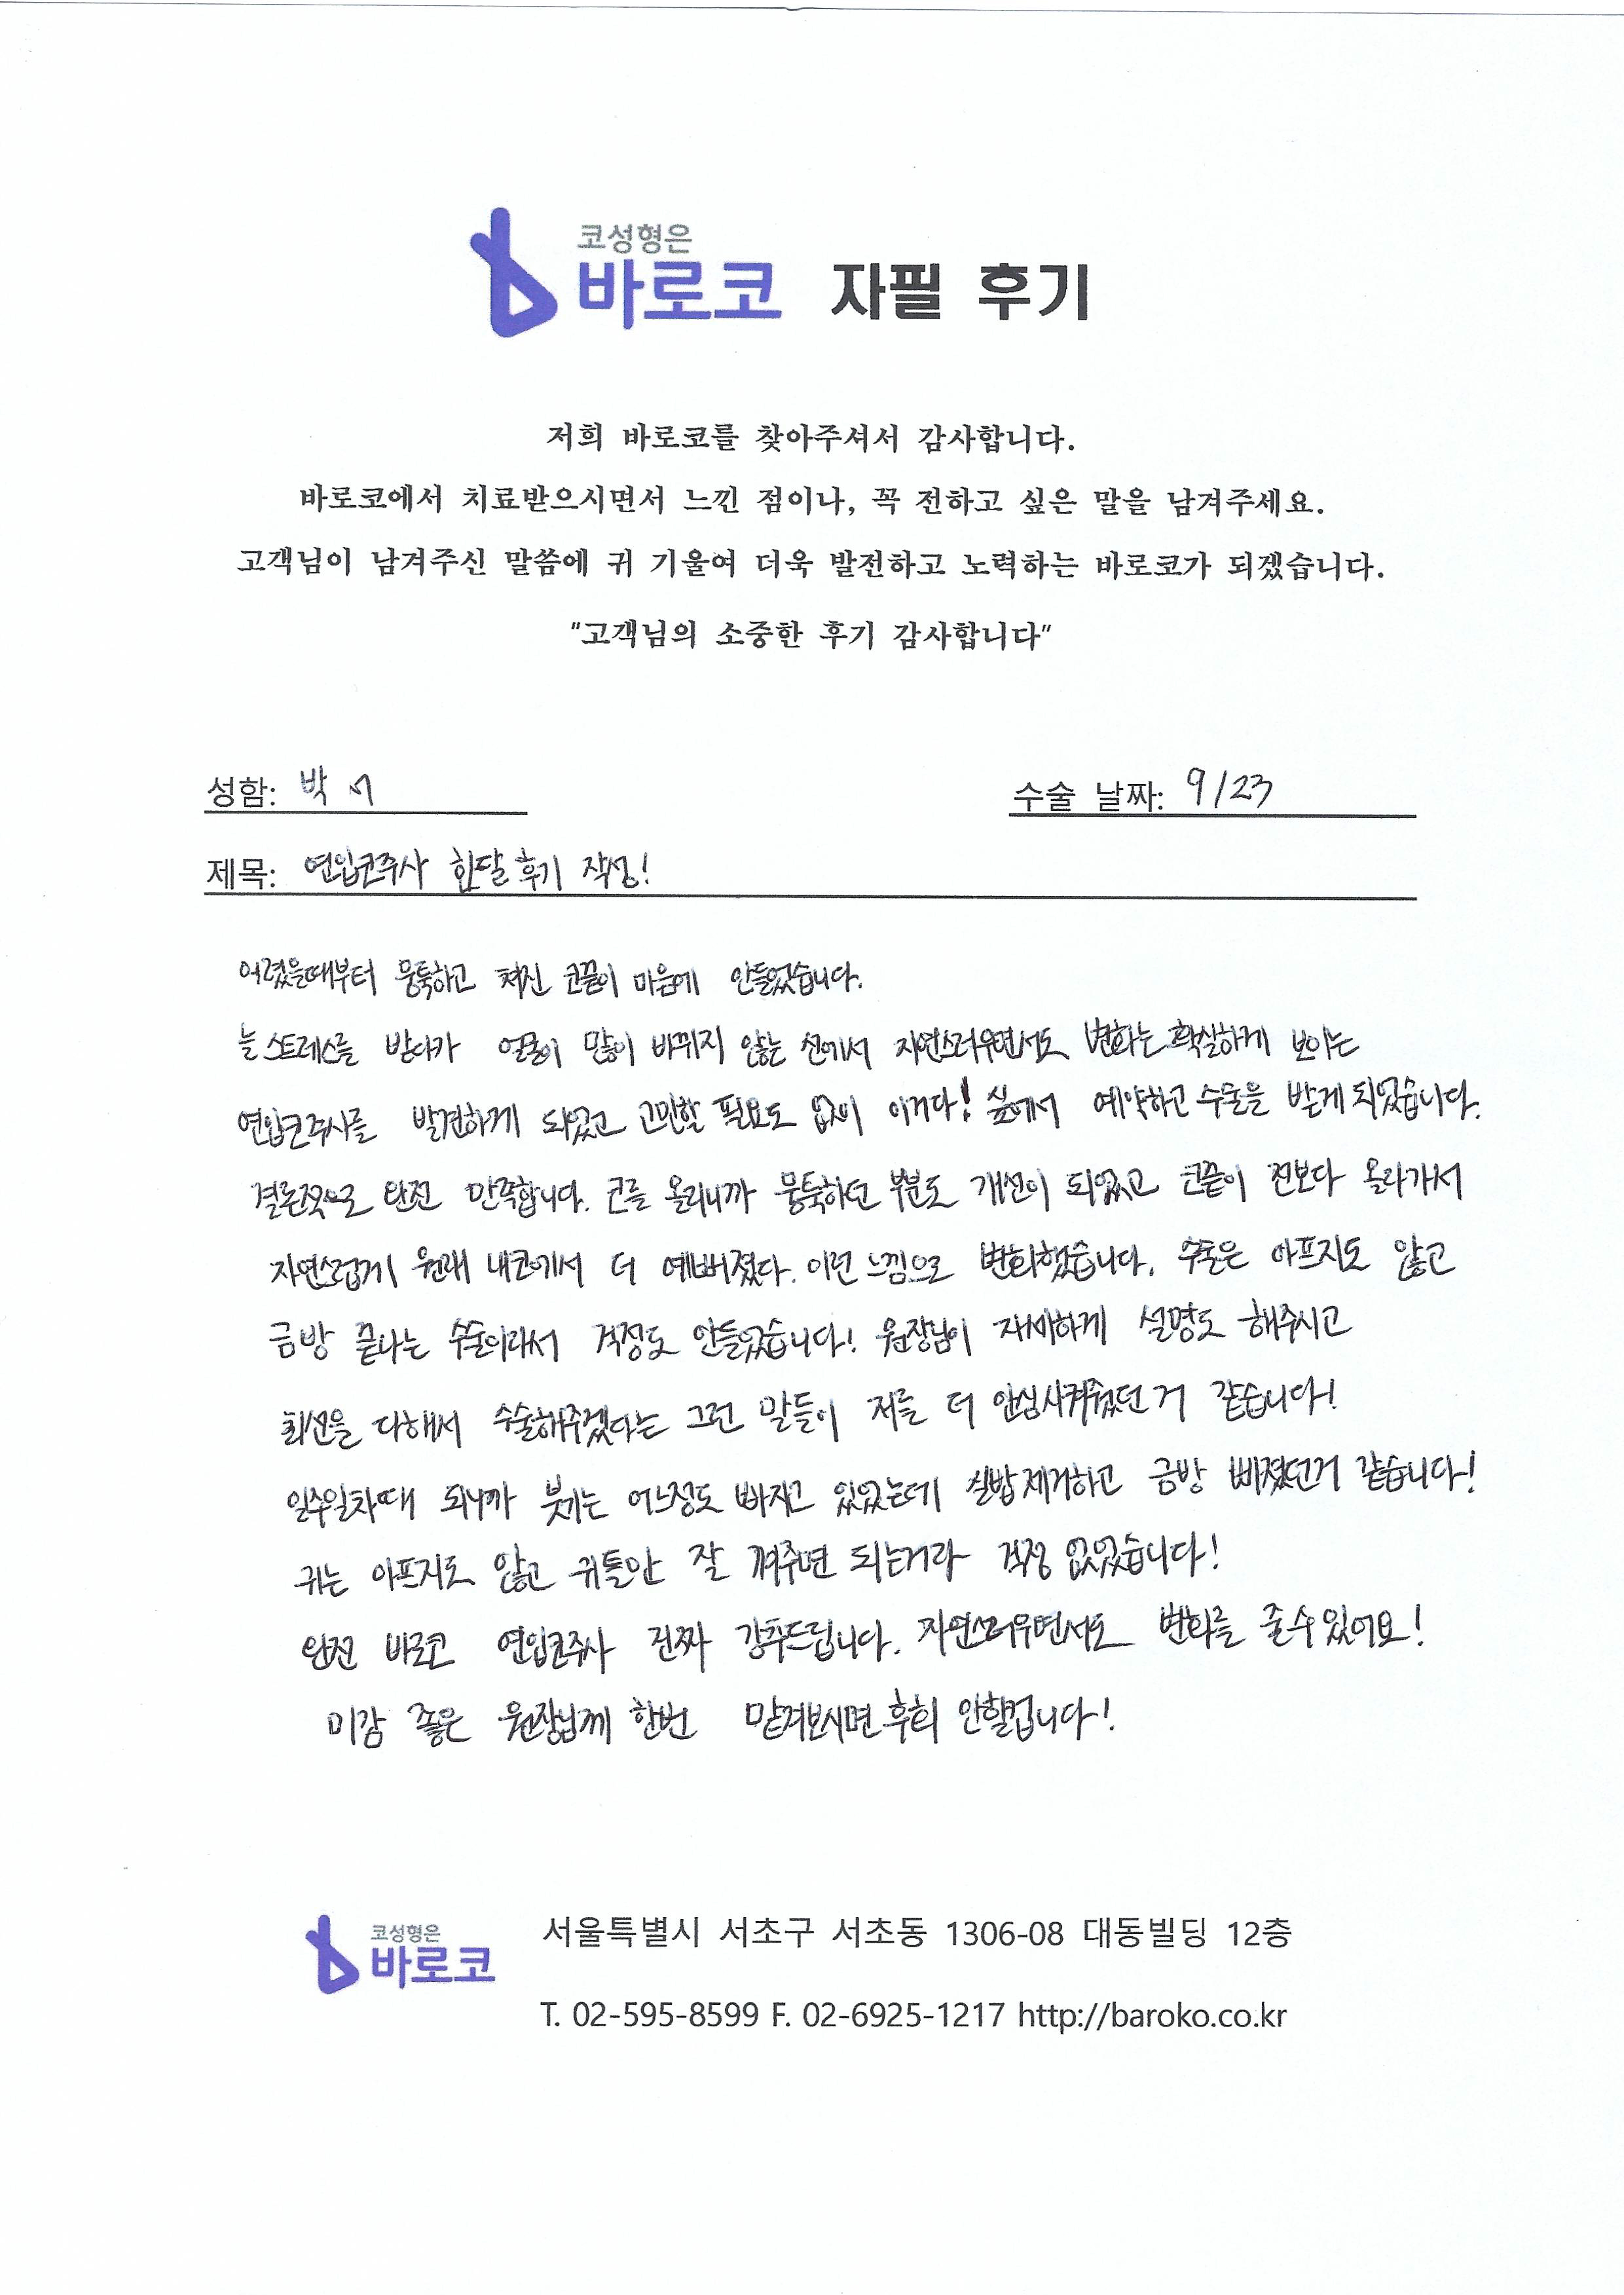 코성형은
바로코 자필 후기
저희 바로코를 찾아주셔서 감사합니다.
바로코에서 치료받으시면서 느낀 점이나, 꼭 전하고 싶은 말을 남겨주세요.
고객님이 남겨주신 말씀에 귀 기울여 더욱 발전하고 노력하는 바로코가 되겠습니다.
"고객님의 소중한 후기 감사합니다"
성함: 박
수술 날짜: 9/23
제목: 연입코주사 한달 후기 작성!
어렸을때부터 뭉툭하고 쳐진 코끝이 마음에 안들었습니다.
늘 스트레스를 받다가 얼굴이 많이 바뀌지 않는 선에서 자연스러우면서도 변화는 확실하게 보이는
연입코주사를 발견하게 되었고 고민할 필요도 없이 이거다! 싶어서 예약하고 수술을 받게 되었습니다.
결론적으로 완전 만족합니다. 코를 올리니까 뭉툭하던 부분도 개선이 되었고 코끝이 전보다 올라가서
자연스럽게 원래 내코에서 더 예뻐졌다. 이런 느낌으로 변화했습니다. 수술은 아프지도 않고
금방 끝나는 수술이라서 걱정도 안들었습니다! 원장님이 자세하게 설명도 해주시고
최선을 다해서 수술해주겠다는 그런 말들이 저를 더 안심시켜줬던 거 같습니다!
일주일차때 되니까 붓기는 어느정도 빠지고 있었는데 실밥제거하고 금방 빠졌던거 같습니다!
귀는 아프지도 않고 귀틀만 잘 껴주면 되는거라 걱정 없었습니다!
완전 바로코 연입코주사 진짜 강추드립니다. 자연스러우면서도 변화를 줄수있어요!
미감 좋은 원장님께 한번 맡겨보시면 후회 안할겁니다!
코성형은
바로코
서울특별시 서초구 서초동 1306-08 대동빌딩 12층
T. 02-595-8599 F. 02-6925-1217 http://baroko.co.kr